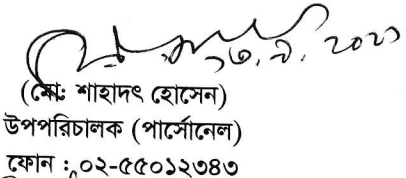 ১৩.৭.২০২১
(মো: শাহাদৎ হোসেন)
উপপরিচালক (পার্সোনেল)
ফোন : ০২-৫৫০১২৩৪৩